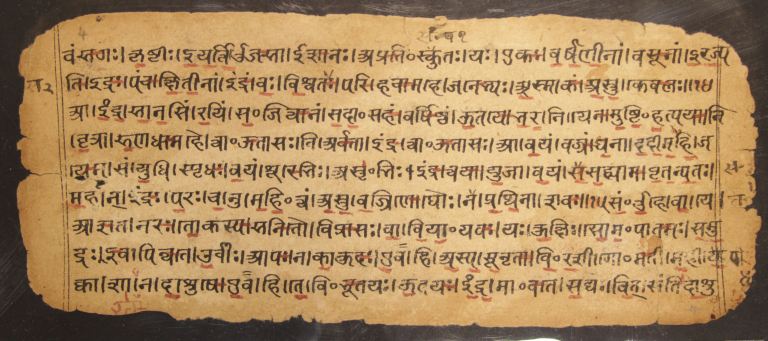 वंसगः।कृष्टीः।इयर्ति।ओजसा।ईशानः।अप्रति॰स्कुतः।यः।एकः।चर्षणीनां।वसूनां।इरज्य
ति।इंद्रः।पंच।क्षितीनां।इंद्रं।वः।विश्वतः।परि।हवामहे।जनेभ्यः।अस्माकं।अस्तु।केवलः॥१४
आ।इंद्र।सानसिं।रयिं।स॰जित्वानं।सदा॰सहं।वर्षिष्ठं।ऊतये।भर।नि।येन।मुष्टि॰हत्यया।नि
।वृत्रा।रुणधामहै।त्वा॰ऊतासः।नि।अर्वता।इंद्र।त्वा॰ऊतासः।आ।वयं।वज्रं।घना।ददीमहि।ज
येम।सं।युधि।स्पृधः।वयं।शूरेभिः।अस्तृ॰भिः।इंद्र।त्वया।युजा।वयं।ससह्याम।पृतन्यतः।
महान्।इंद्रः।परः।च।नु।महि॰त्वं।अस्तु।वज्रिणे।द्यौः।न।प्रथिना।शवः॥१५सं॰ओहे।वा।ये
आशत।नरः।तोकस्य।सनितौ।विप्रासः।वा।धिया॰यवः।यः।कुक्षिः।सोम॰पातमः।समु
द्रः।इव।पिन्वते।उर्वीः।आपः।न।काकुदः।एव।हि।अस्य।सूनृता।वि॰रप्शी।गो॰मती।मही।
पक्वा।शाखा।न।दाशुषे।एव।हि।ते।वि॰भूतयः।ऊतयः।इंद्र।मा॰वते।सद्यः।चित्।संति।दाशु